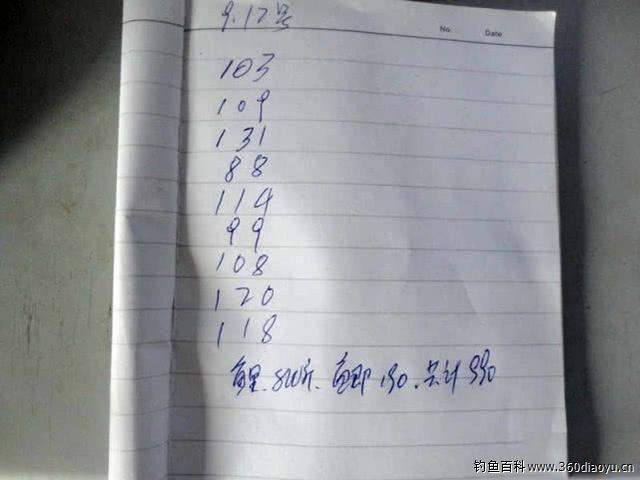 9.12号
No. Date
103
109
131
88
114
99
108
120
118
鲤.800斤.鲫190.共计990
钓鱼百科www.360diaoyu.cn